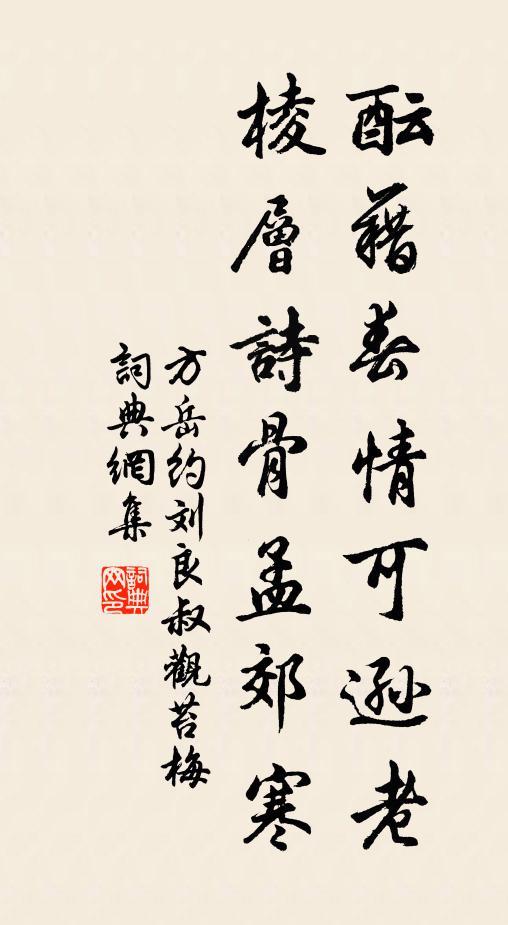 酝藉春情可遜老
棱層詩骨孟郊寒
方岳约刘良叔觀苔梅
詞典網集
詞典
网印